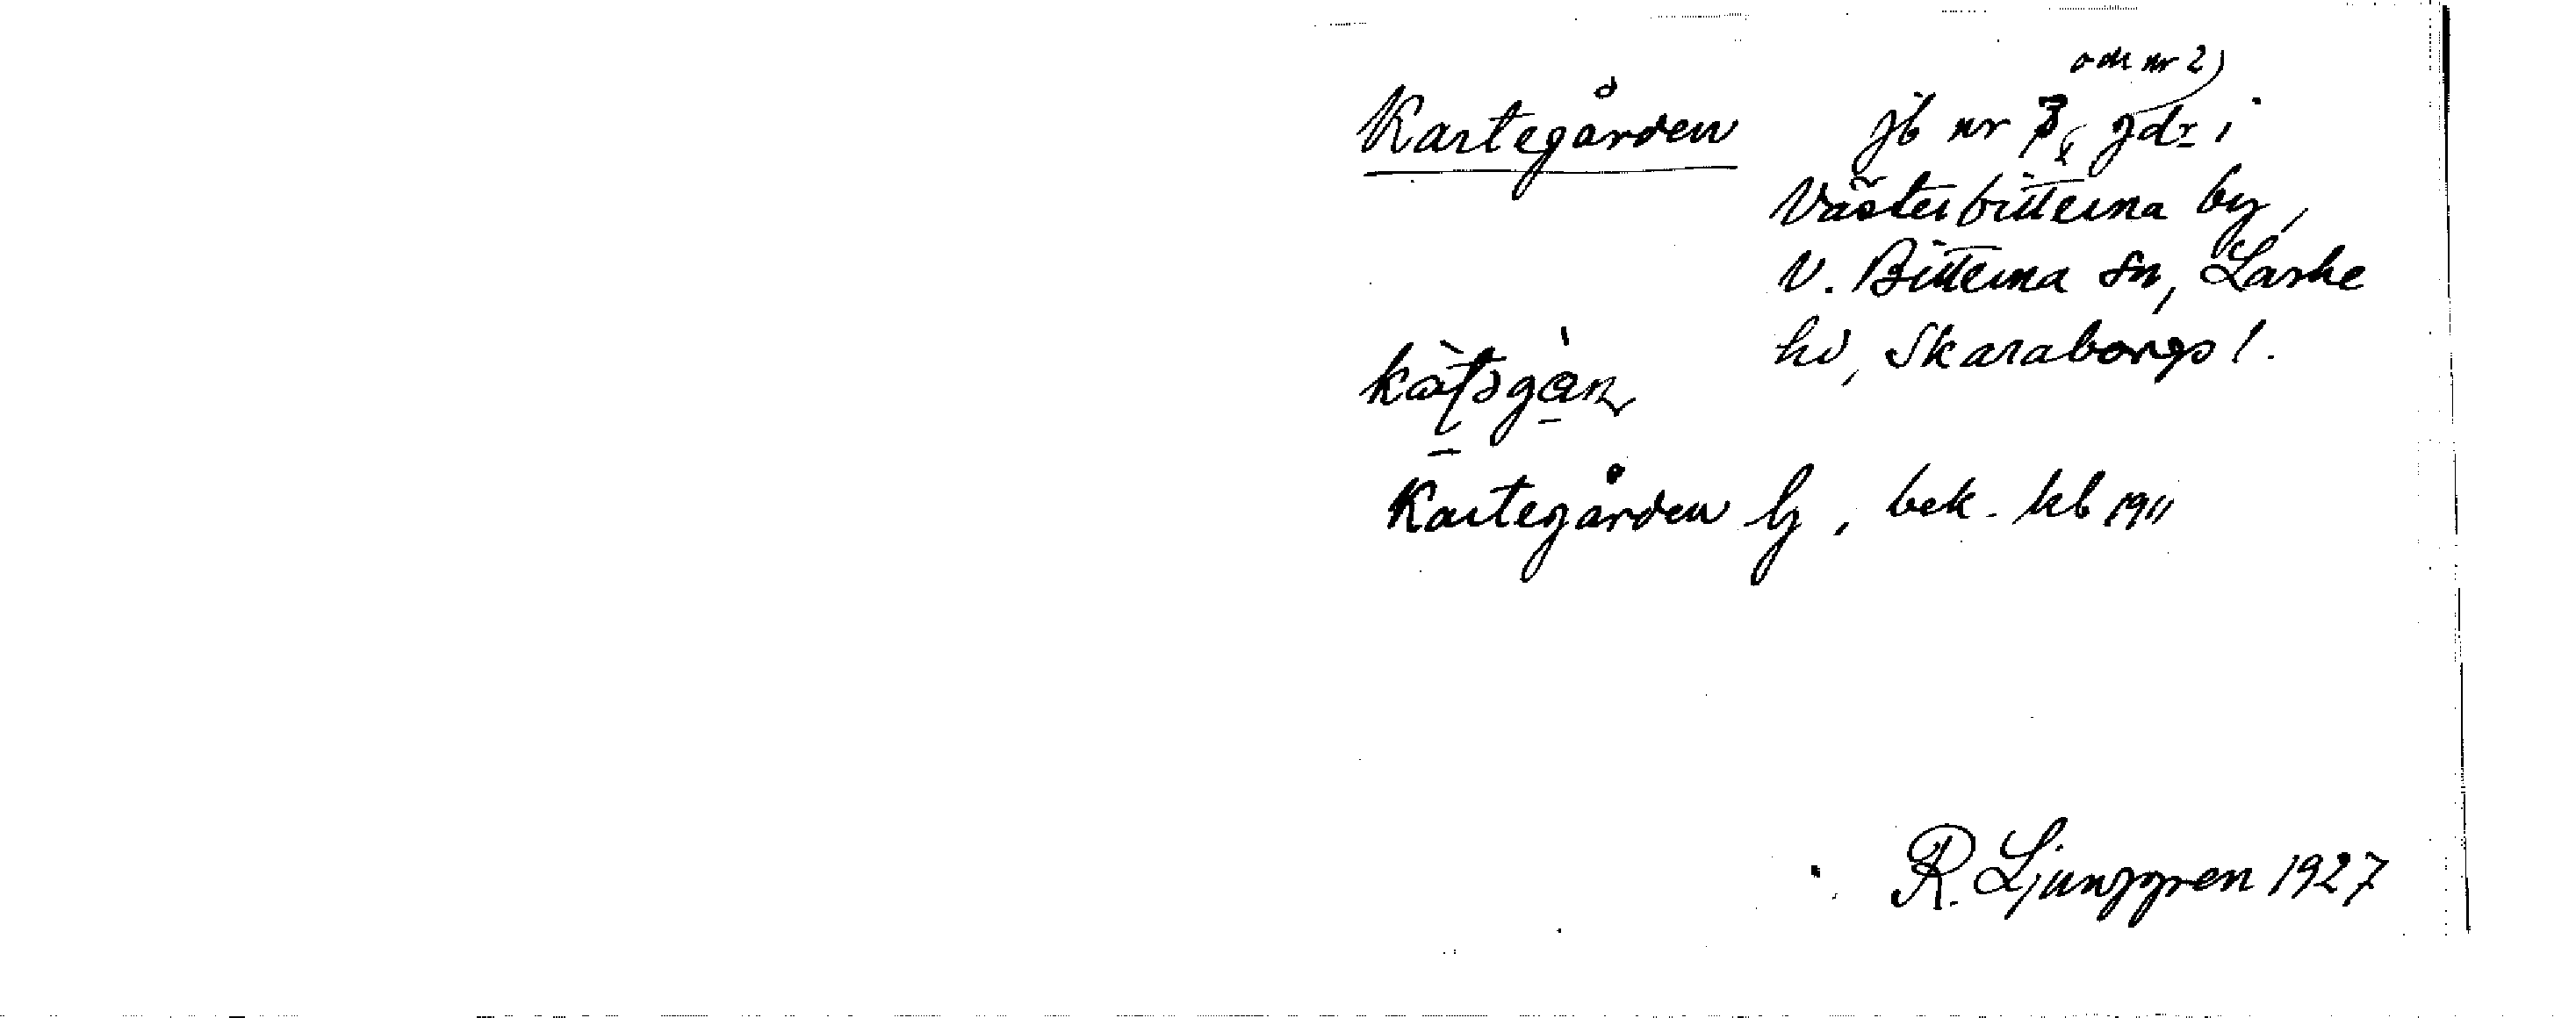 Kartegården jb nr 3 (och nr 2), gdr i
Västerbitterna by,
V. Bitterna sn, Laske
hd, Skaraborgs l.
Kartegården lg, bek. kb 1911
R. Ljunggren 1927